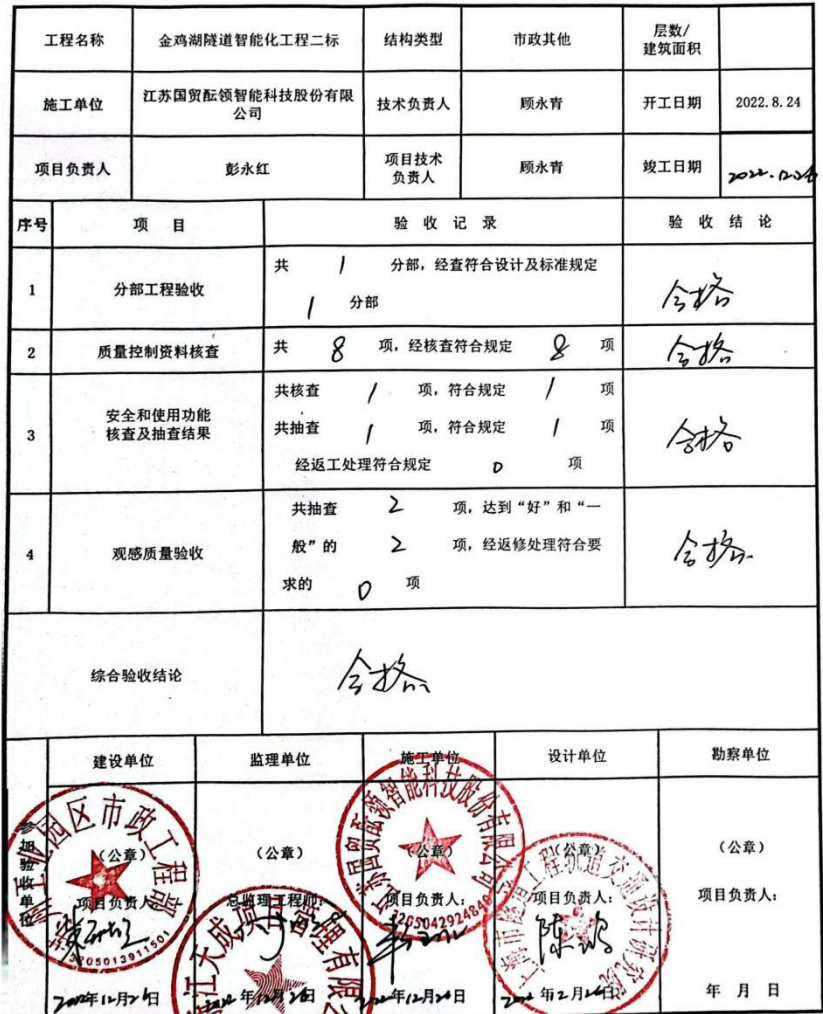 工程名称 金鸡湖隧道智能化工程二标 结构类型 市政其他 层数/
建筑面积
施工单位 江苏国贸酝领智能科技股份有限
公司 技术负责人 顾永青 开工日期 2022.8.24
项目负责人 彭永红 项目技术
负责人 顾永青 竣工日期 2022.12.26
序号 项 目 验 收 记 录 验 收 结 论
1 分部工程验收 共 1 分部，经查符合设计及标准规定
1 分部 合格
2 质量控制资料核查 共 8 项，经核查符合规定 8 项 合格
3 安全和使用功能
核查及抽查结果 共核查 1 项，符合规定 1 项
共抽查 1 项，符合规定 1 项 合格
经返工处理符合规定 0 项
4 观感质量验收 共抽查 2 项，达到“好”和“一
般”的 2 项，经返修处理符合要 合格
求的 0 项
综合验收结论 合格
参加验收单位 建设单位 监理单位 施工单位 设计单位 勘察单位
（公章） （公章） （公章） （公章） （公章）
项目负责人： 总监理工程师： 项目负责人： 项目负责人： 项目负责人：
2022年12月26日 2022年12月26日 2022年12月26日 2022年12月26日 年 月 日
园区市政工程部
3205013911501
江苏国贸酝领智能科技股份有限公司
天成项目管理有限公
轨道交通设计研究院